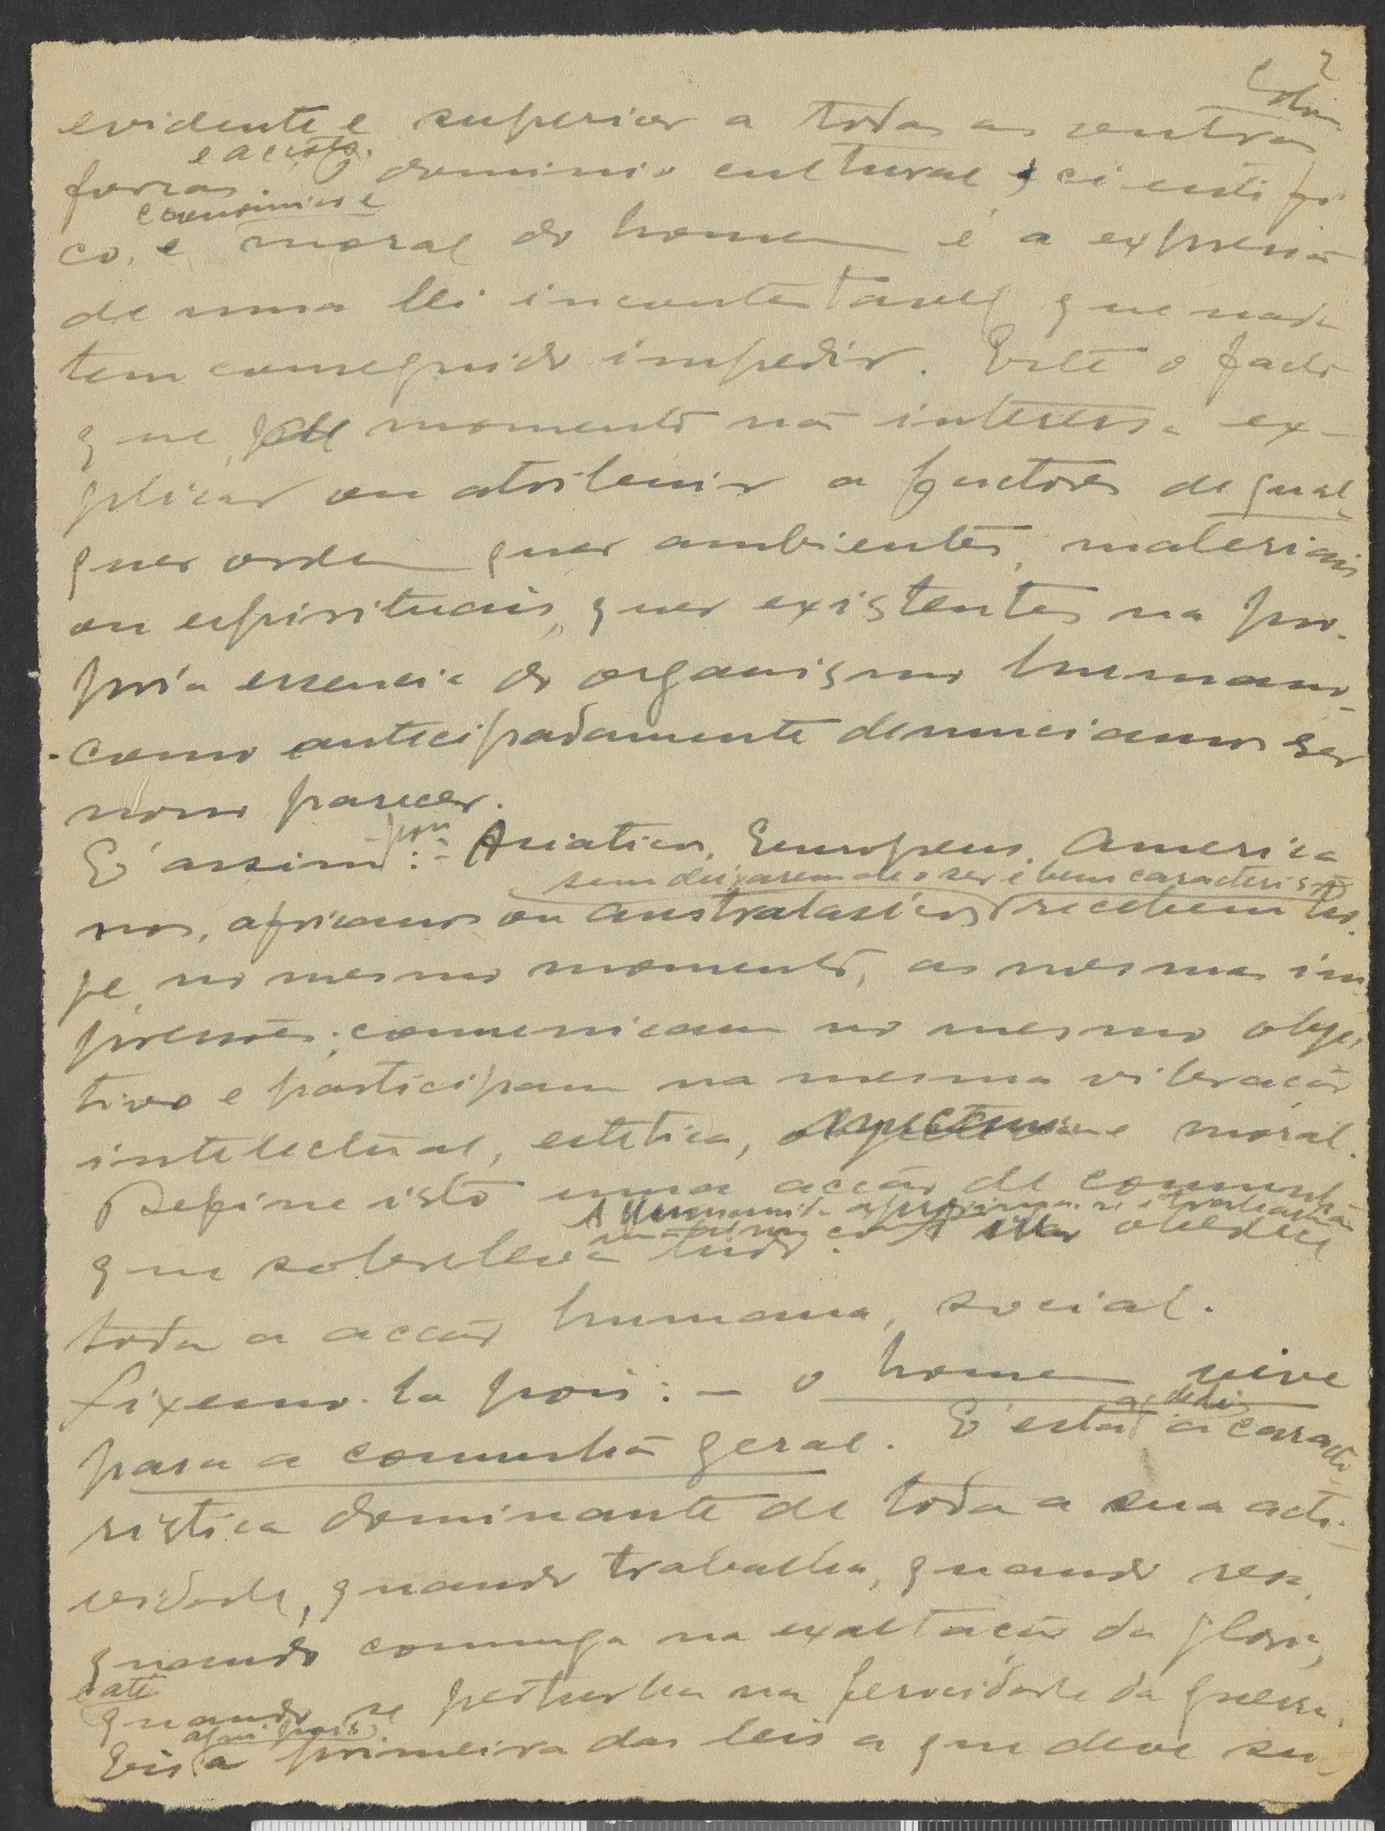 2
evidente e superior a todas as outras
e aceite.
forças. O dominio cultural, cientifi-
economico e
co, e moral do homem é a expressão
de uma lei incontestavel que nada
tem conseguido impedir. Este o facto
que, momento não interessa ex-
plicar ou atribuir a factores de qual
quer ordem quer ambientes, materiais
ou espirituais, quer existentes na pro-
pria essencia do organismo humano-
como antecipadamente denunciamos ser
nosso parecer.
E' assim: - Asiaticos, Europeus, America
sem deixarem de o ser e bem caracteris
nos, africanos ou australasicos recebem ho-
je, no mesmo momento, as mesmas im-
pressões; comunicam no mesmo obje-
tivo e participam na mesma vibração
intelectual, estetica, e moral.
Define isto uma acção de comunhão
A Humanidade aproxima-se
que sobreleva tudo. A obedece
toda a acção humana, social.
Fixemo-la pois: - o homem vive
para a comunhão geral. E' esta a caracte-
ristica dominante de toda a sua acti-
vidade, quando trabalha, quando reza,
quando comunga na exaltação da gloria,
e até
quando se perturba na ferocidade da guerra.
aqui pois
Eis a primeira das leis a que deve su-